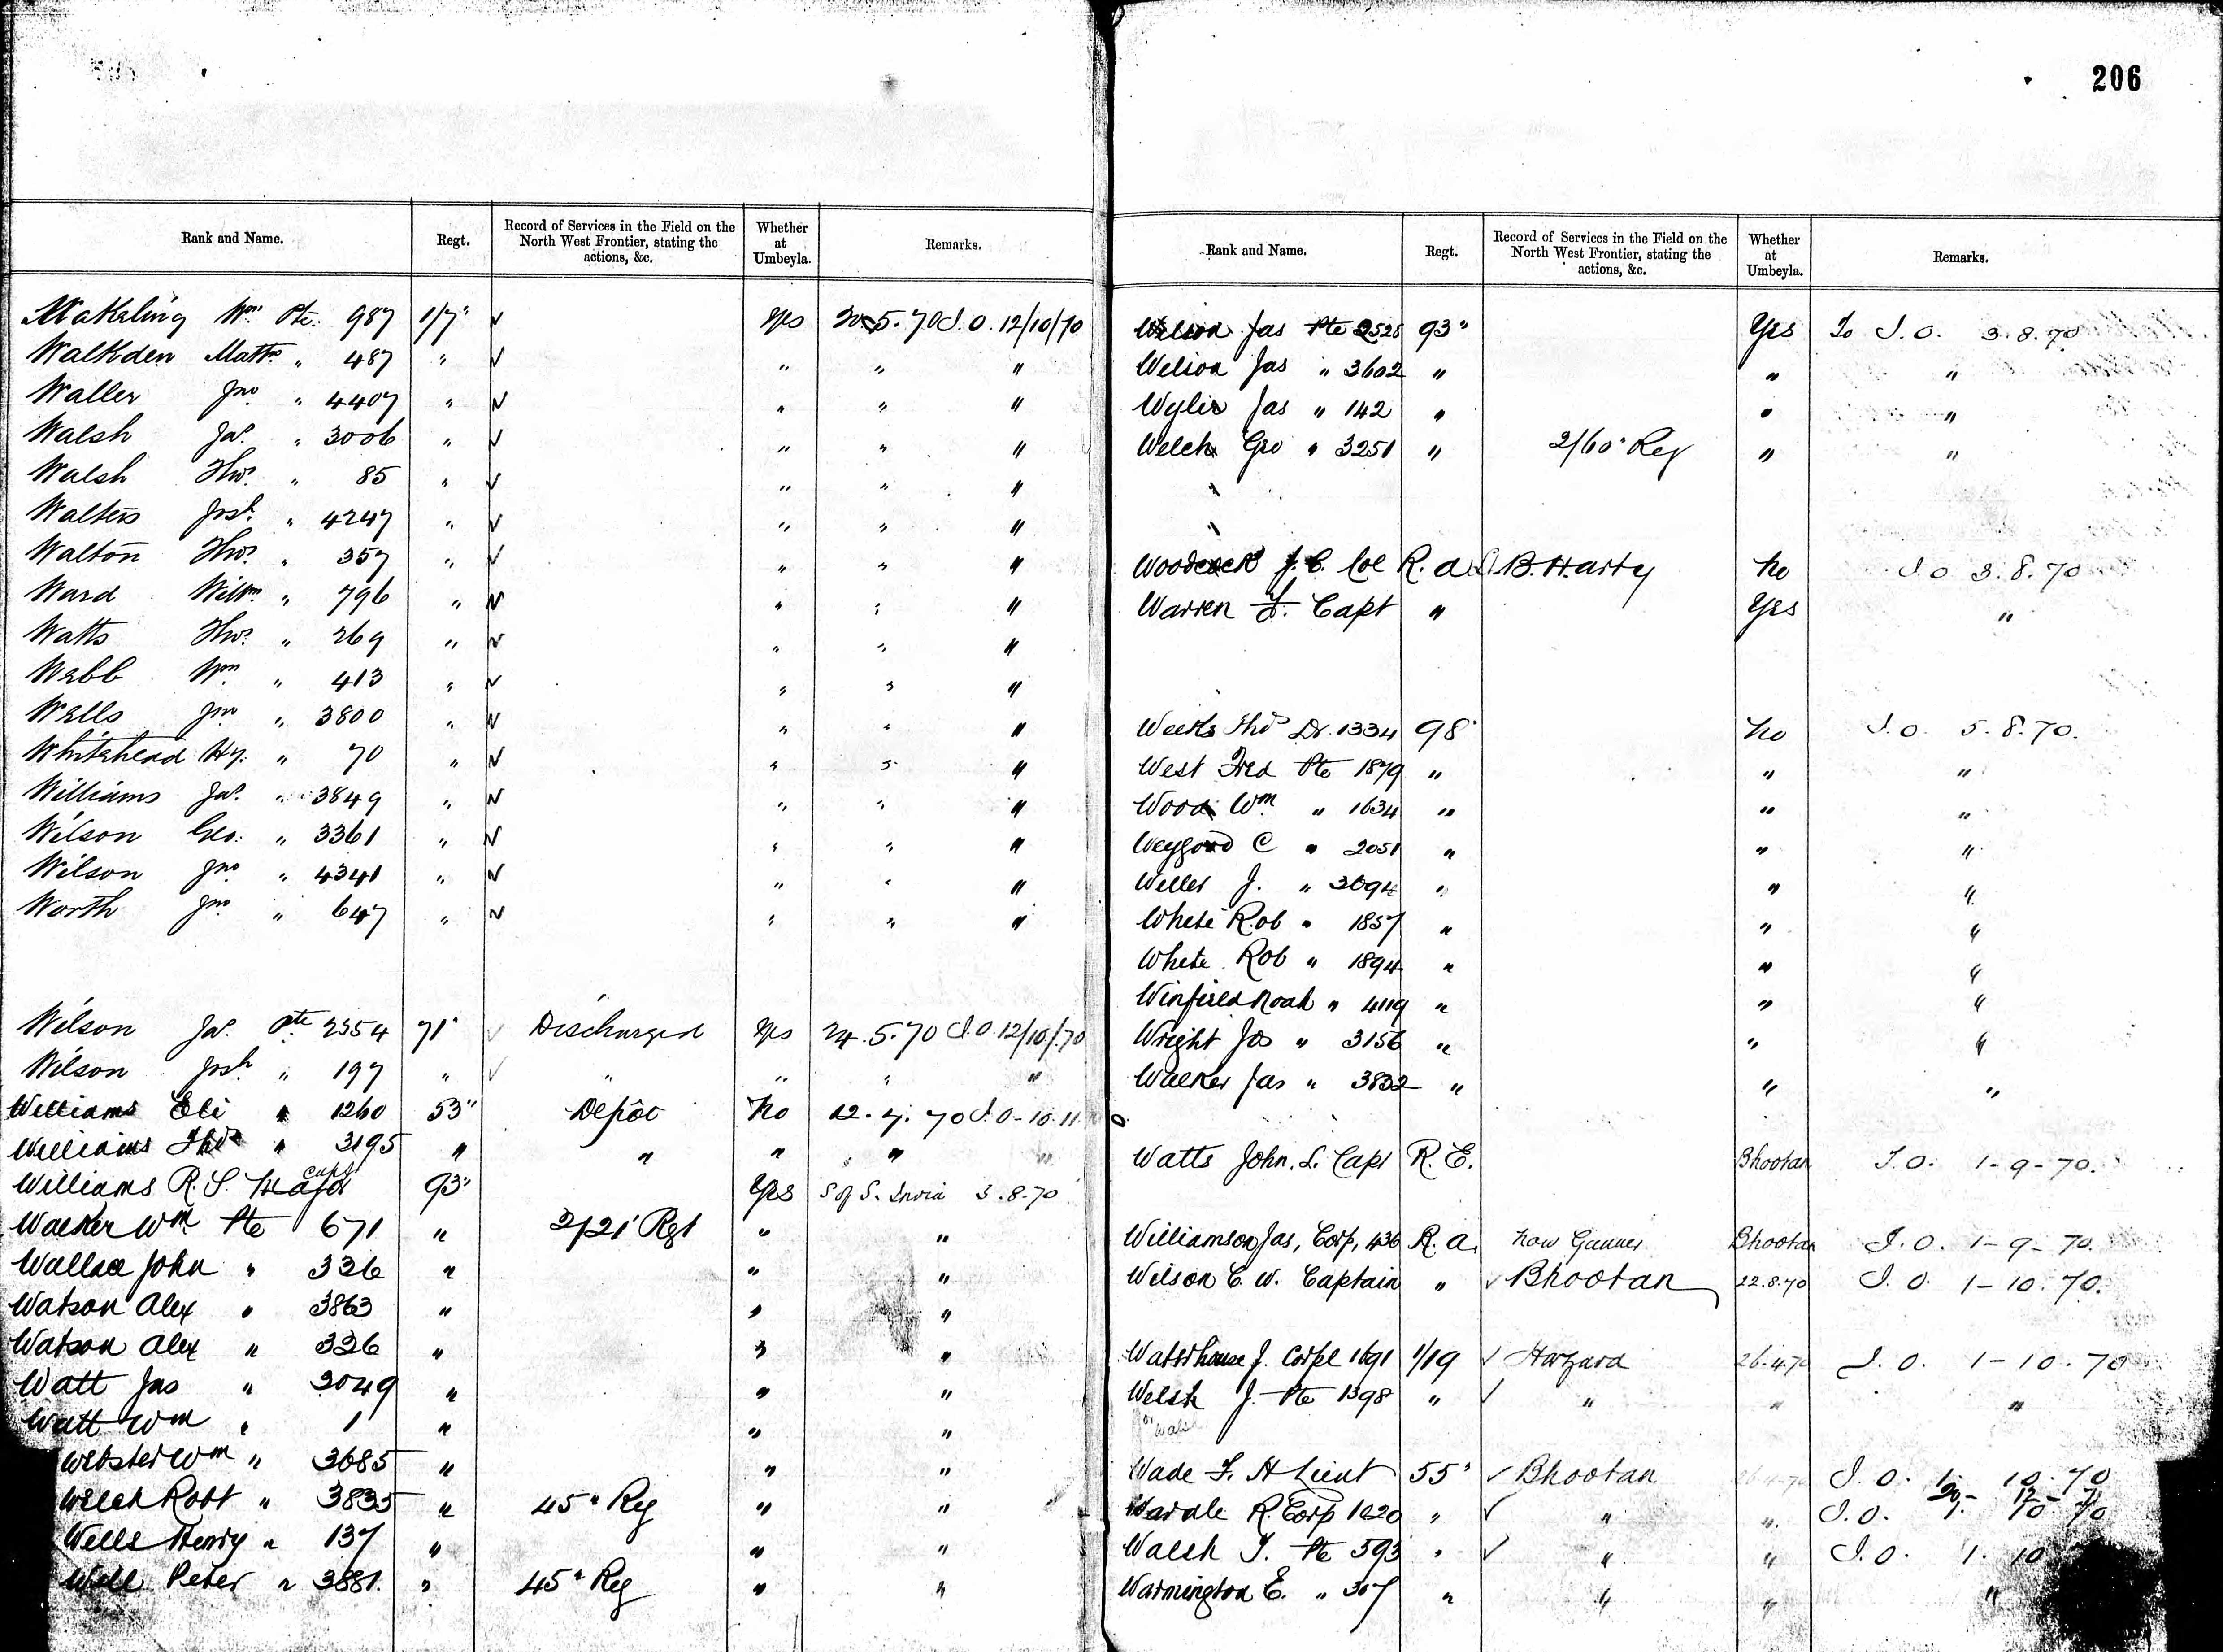 206
Rank and Name. Regt. Record of Services in the Field on the North West Frontier, stating the actions, &c. Whether at Umbeyla. Remarks.
Wakeling Wm Pte. 987 1/7" ✓ Yes 5. 70 I. O. 12/10/70
Walkden Matt. " 487 " ✓ " " "
Waller Jno " 4407 " ✓ " " "
Walsh Jas. " 3006 " ✓ " " "
Walsh Thos. " 85 " ✓ " " "
Walters Josh. " 4247 " ✓ " " "
Walton Thos. " 357 " ✓ " " "
Ward Willm. " 796 " ✓ " " "
Watts Thos. " 269 " ✓ " " "
Webb Wm " 413 " ✓ " " "
Wells Jno " 3800 " ✓ " " "
Whitehead Hy. " 70 " ✓ " " "
Williams Jas. " 3849 " ✓ " " "
Wilson Geo. " 3361 " ✓ " " "
Wilson Jno " 4341 " ✓ " " "
Worth Jno " 647 " ✓ " " "
Wilson Jas. Pte 2354 71" ✓ Discharged Yes 24. 5. 70 I. O. 12/10/70
Wilson Josh " 197 " ✓ " " " "
Williams Eli " 1260 53" Depôt No 12. 7. 70 I. O - 10. 11.
Williams Thos " 3195 " " " " "
Williams R. S. Capt 93" Yes S of S. India 3. 8. 70
Walker Wm Pte 671 " 2/21" Regt " "
Wallace John " 326 " " "
Watson Alex " 3863 " " "
Watson Alex " 326 " " "
Watt Jas " 3049 " " "
Watt Wm " 1 " " "
Webster Wm " 3685 " " "
Welch Robt " 3835 " 45" Reg " "
Wells Henry " 137 " " "
Well Peter " 3881. " 45" Reg " "
Rank and Name. Regt. Record of Services in the Field on the North West Frontier, stating the actions, &c. Whether at Umbeyla. Remarks.
Wilson Jas Pte 2528 93" Yes To I. O. 3. 8. 70
Wilson Jas " 3602 " " "
Wylie Jas " 142 " " "
Welch Geo " 3251 " 2/60" Reg " "
Woodcock J. C. Col R. A. B. H. Arty No I. O 3. 8. 70
Warren F. Capt " Yes "
Weeks Thos Dr. 1334 98" No I. O. 5. 8. 70.
West Fred Pte 1879 " " "
Wood Wm " 1634 " " "
Weygood C " 2051 " " "
Weller J. " 3694 " " "
White Rob " 1857 " " "
White Rob " 1894 " " "
Winfield Noah " 4119 " " "
Wright Jas " 3156 " " "
Walker Jas " 3832 " " "
Watts John. L. Capt R. E. Bhootan I. O. 1-9-70.
Williamson Jas, Corp, 436 R. A. now Gunner Bhootan I. O. 1-9-70.
Wilson C. W. Captain " ✓ Bhootan 22.8.70 I. O. 1-10. 70.
Waterhouse J. Corpl 1691 1/19 ✓ Hazzara 26.4.70 I. O. 1-10. 70
Welsh J. Pte 1398 " ✓ " " "
or Walsh
Wade F. H Lieut 55" ✓ Bhootan 26.4.70 I. O. 1. 10. 70
Wardle R. Corp 1020 " ✓ " " I. O. 10 70
Walsh T. Pte 593 " ✓ " " I. O. 1. 10
Warmington E. " 307 " " " "